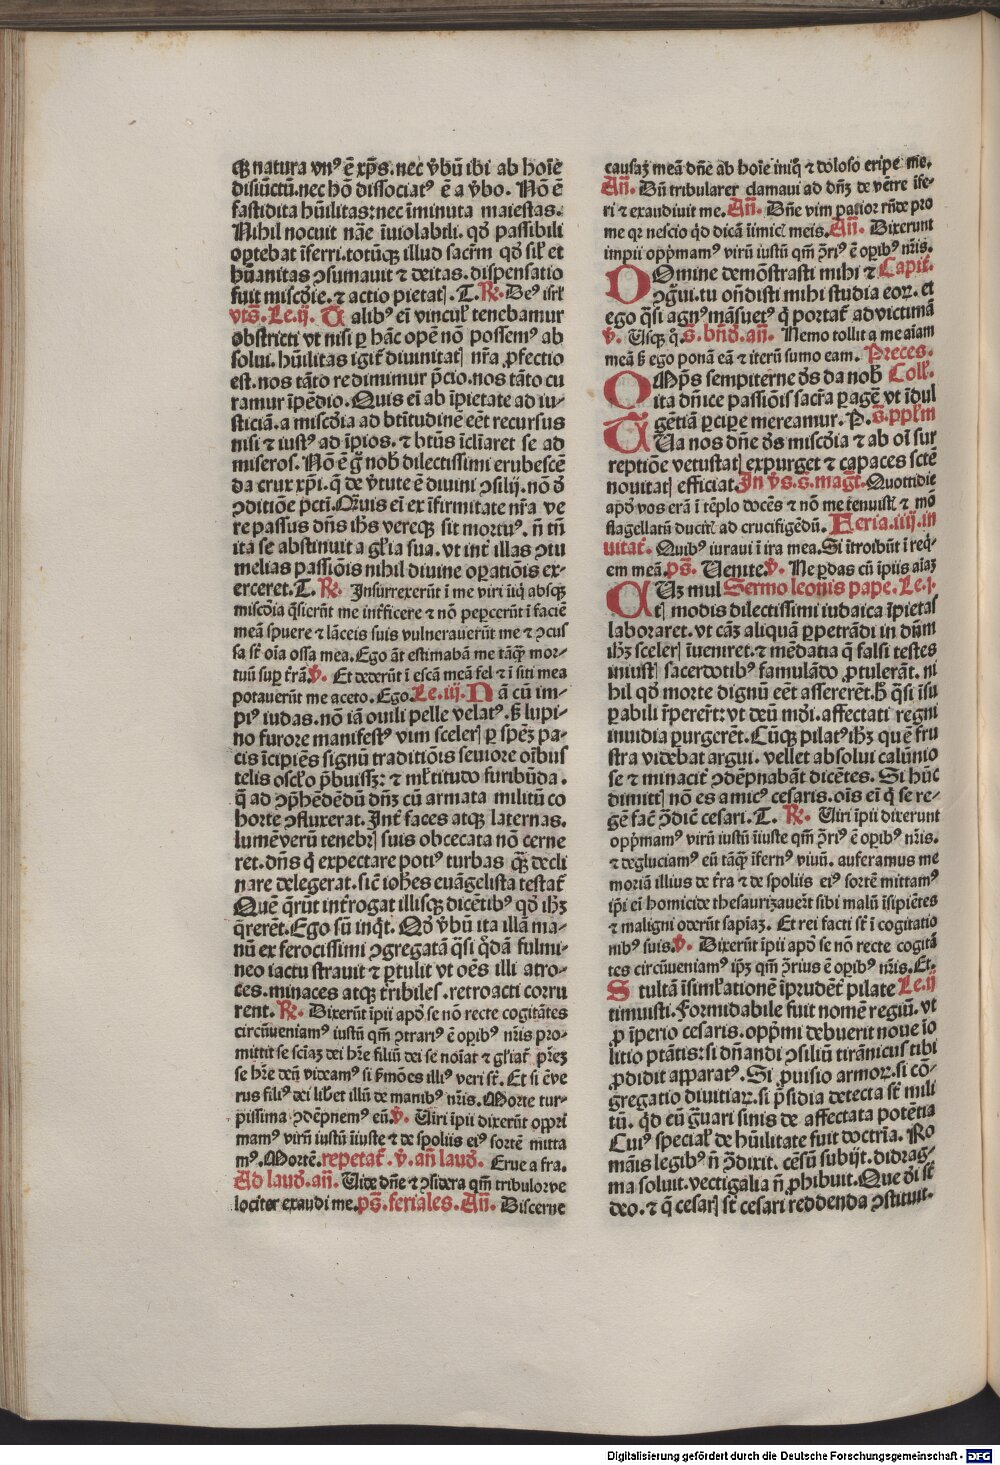 qꝫ natura vnꝰ ē xp̄s. nec v̄bū ibi ab hoīe
disiūctū. nec hō dissociatꝰ ē a v̄bo. Nō ē
fastidita hūilitas: nec īminuta maiestas.
Nihil nocuit nāe īuiolabili. qd̄ passibili
oꝑtebat īferri. totūqꝫ illud sacrm̄ qd̄ sil̄ et
hūanitas ↄsumauit ⁊ deitas. dispensatio
fuit miscd̄ie. ⁊ actio pietatꝭ. T. R̄. Deꝰ isrl̄
vts̄. Le. ij. Talibꝰ eī vincul̄ tenebamur
obstricti vt nisi ꝑ hāc opē nō possemꝰ ab
solui. hūilitas igit̄ diuinitatꝭ nr̄a ꝓfectio
est. nos tāto redimimur p̄cio. nos tāto cu
ramur īpēdio. Quis eī ab īpietate ad iu-
sticiā. a miscd̄ia ad btītudinē eēt recursus
nisi ⁊ iustꝰ ad īpios. ⁊ btūs īclīaret se ad
miseros. Nō ē gͦ nob̄ dilectissimi erubescē
da crux xp̄i. q̄ de v̄tute ē diuini ↄsilij. nō d̄
ↄditiōe pc̄ti. Qᷓuis eī ex īfirmitate nr̄a ve
re passus dn̄s ih̄s vereqꝫ sit mortuꝰ. n̄ tn̄
ita se abstinuit a gl̄ia sua. vt int̄ illas ↄtu
melias passiōis nihil diuine oꝑatiōis ex-
erceret. T. R̄. Insurrexerūt ī me viri iniq̄ absqꝫ
miscd̄ia q̄sierūt me int̄ficere ⁊ nō peꝑcerūt ī faciē
meā spuere ⁊ lāceis suis vulnerauerūt me ⁊ ↄcus
sa st̄ oīa ossa mea. Ego āt estimabā me tāqᷓ mor-
tuū suꝑ t̄rā. v̄. Et dederūt ī escā meā fel ⁊ ī siti mea
potauerūt me aceto. Ego. Le. iij. Nā cū im-
piꝰ iudas. nō iā ouili pelle velatꝰ. ꝫ lupi-
no furore manifestꝰ vim scelerꝭ ꝑ spēꝫ pa-
cis īcipiēs signū traditiōis seuiore oībus
telis oscl̄o p̄buissꝫ: ⁊ ml̄titudo furibūda.
q̄ ad ↄp̄hēdēdū dn̄ꝫ cū armata militū co
horte ↄfluxerat. Int̄ faces atqꝫ laternas.
lumē verū tenebrꝭ suis obcecata nō cerne
ret. dn̄s q̄ expectare potiꝰ turbas qᷓꝫ decli
nare delegerat. sic̄ ioh̄es euāgelista testat̄
Quē q̄rūt int̄rogat illisqꝫ dicētibꝰ qd̄ ih̄ꝫ
q̄rerēt. Ego sū inqͥt. Qd̄ v̄bū ita illā ma-
nū ex ferocissimi ↄgregatā q̄si qͦdā fulmi-
neo iactu strauit ⁊ ꝑtulit vt oēs illi atro-
ces. minaces atqꝫ t̄ribiles. retroacti corru
rent. R̄. Dixerūt īpii apd̄ se nō recte cogitātes
circūueniamꝰ iustū qm̄ ↄtrariꝰ ē oꝑibꝰ nr̄is pro-
mittit se sciāꝫ dei hr̄e filiū dei se noīat ⁊ gl̄iat̄ pr̄eꝫ
se hr̄e deū videamꝰ si s̄mōes illiꝰ veri st̄. Et si ē ve
rus filiꝰ dei lib̄et illū de manibꝰ nr̄is. Morte tur-
pissima ↄdēpnemꝰ eū. v̄. Uiri īpii dixerūt oppri
mamꝰ virū iustū īiuste ⁊ de spoliis eiꝰ sortē mitta
mꝰ. Mortē. repetat̄. v̄. añ laud̄. Erue a fra.
Ad laud̄. añ. Uide dn̄e ⁊ ↄsidera qm̄ tribulor ve
lociter exaudi me. ps̄. feriales. Añ. Discerne
causaꝫ meā dn̄e ab hoīe iniqͦ ⁊ doloso eripe me.
Añ. Dū tribularer clamaui ad dn̄ꝫ de vētre īfe-
ri ⁊ exaudiuit me. Añ. Dn̄e vim patior rn̄de pro
me qꝛ nescio qd̄ dicā īimicꝭ meis. Añ. Dixerunt
impii opp̄mamꝰ virū iustū qm̄ ↄ̄riꝰ ē oꝑibꝰ nr̄is.
Domine demōstrasti mihi ⁊ Capit̄.
ↄgͦui. tu on̄disti mihi studia eoꝝ. et
ego q̄si agnꝰ māsuetꝰ q̄ portat̄ ad victimā
v̄. Tisqꝫ qͦ. S. bn̄d̄. añ. Nemo tollit a me aīam
meā ꝫ ego ponā eā ⁊ iterū sumo eam. Preces.
OMp̄s sempiterne ds̄ da nob̄ Coll̄.
ita dn̄ice passiōis sacr̄a ꝑagē vt īdul
gētiā ꝑcipe mereamur. P. S. ppl̄m
TUa nos dn̄e ds̄ miscd̄ia ⁊ ab oī sur
reptiōe vetustatꝭ expurget ⁊ capaces sctē
nouitatꝭ efficiat. In v̄s. s. mag̅t̄. Quottidie
apd̄ vos erā ī tēplo docēs ⁊ nō me tenuistꝭ ⁊ mō
flagellatū ducitꝭ ad crucifigēdū. Feria. iiij. in
uitat̄. Quibꝰ iuraui ī ira mea. Si ītroibūt ī req̄-
em meā. ps̄. Uenite. v̄. Ne ꝑdas cū īpiis aīaꝫ
CUꝫ mul Sermo leonis pape. Le. j.
tꝭ modis dilectissimi iudaica īpietas
laboraret. vt cāꝫ aliquā ꝑpetrādi in dn̄m
ih̄ꝫ scelerꝭ īueniret. ⁊ mēdatia q̄ falsi testes
iniustꝭ sacerdotibꝰ famulādo ꝓtulerāt. ni
hil qd̄ morte dignū eēt assererēt. h̄ q̄si īsu
ꝑabili īperēt̄: vt deū mōi. affectati regni
inuidia ꝑurgerēt. Cūqꝫ pilatꝰ ih̄ꝫ quē fru
stra videbat argui. vellet absolui calūnio
se ⁊ minacit̄ ↄdēpnabāt dicētes. Si hūc
dimittꝭ nō es amicꝰ cesaris. oīs eī q̄ se re-
gē fac̄ ↄ̄dic̄ cesari. T. R̄. Uiri īpii dixerunt
opp̄mamꝰ virū iustū īiuste qm̄ ↄ̄riꝰ ē oꝑibꝰ nr̄is.
⁊ degluciamꝰ eū tāqᷓ īfernꝰ viuū. auferamus me
moriā illius de t̄ra ⁊ de spoliis eiꝰ sortē mittamꝰ
ip̄i eī homicide thesaurizauerūt sibi malū īsipiētes
⁊ maligni oderūt sapīaꝫ. Et rei facti st̄ ī cogitatio
nibꝰ suis. v̄. Dixerūt īpii apd̄ se nō recte cogitā
tes circūueniamꝰ ip̄ꝫ qm̄ ↄ̄rius ē oꝑibꝰ nr̄is. Et.
Stultā īsiml̄ationē īprudēt̄ pilate Le. ij
timuisti. Formidabile fuit nomē regiū. vt
ꝓ īperio cesaris. opp̄mi debuerit noue īo
litio ptātis: si dn̄andi ↄsiliū tirānicus tibi
ꝓdidit apparatꝰ. Si ꝓuisio armoꝝ. si cō-
gregatio diuitiaꝝ. si p̄sidia detecta st̄ mili
tū. qͥd eū gͣuari sinis de affectata potētia
Cuiꝰ specīal̄ de hūilitate fuit doctrīa. Ro
māis legibꝰ n̄ ↄ̄dixit. cēsū subijt. didrag-
ma soluit. vectigalia n̄ ꝓhibuit. Que d̄i st̄
deo. ⁊ q̄ cesarꝭ st̄ cesari reddenda ↄstituit.
Digitalisierung gefördert durch die Deutsche Forschungsgemeinschaft - DFG